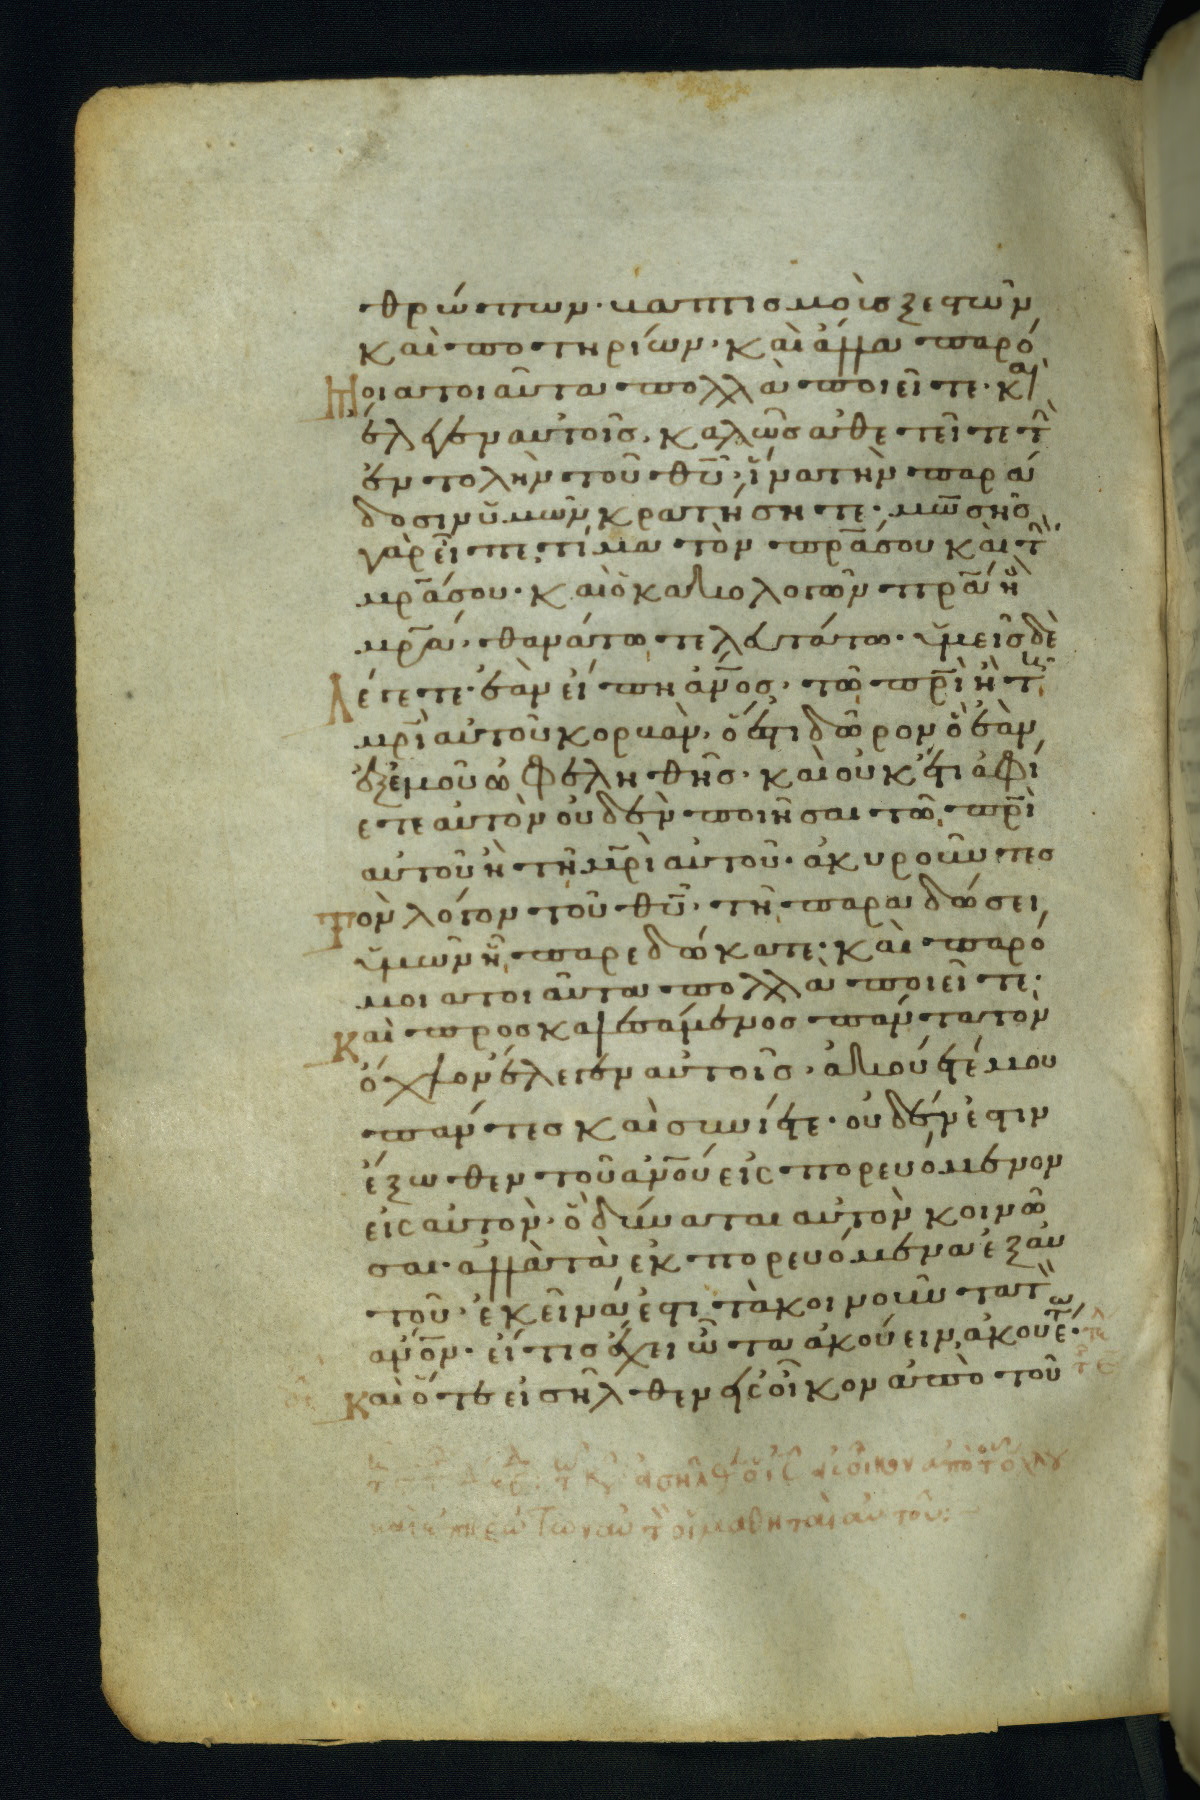 θρώπων· βαπτισμοὺς ξεστῶν
καὶ ποτηρίων· καὶ ἄλλα παρό
μοια τοιαῦτα πολλὰ ποιεῖτε· κ(αὶ)
ἔλεγεν αὐτοῖς· καλῶς ἀθετεῖτε τ(ὴν)
ἐντολὴν τοῦ θ̅υ̅· ἵνα τὴν παρά
δοσιν ὑμῶν κρατήσητε· μω̅σῆς
γὰρ εἶπε, τίμα τὸν π̅ρ̅α̅ σου καὶ τ(ὴν)
μ̅ρ̅α̅ σου· καὶ ὁ κακολογῶν π̅ρ̅α̅ ἢ
μ̅ρ̅α̅· θανάτω τελευτάτω· ὑμεῖς δὲ
λέγετε· ἐὰν εἴπη ἄν̅ο̅ς̅· τῶ π̅ρ̅ι̅ ἢ τῆ
μ̅ρ̅ι̅ αὐτοῦ κορβᾶν· ὅ ἐστι δῶρον ὃ ἐὰν
ἐξ ἐμοῦ ὠφεληθῆς· καὶ οὐκέτι ἀφί
ετε αὐτὸν οὐδὲν ποιῆσαι τῶ π̅ρ̅ι̅
αὐτοῦ ἢ τῆ μ̅ρ̅ι̅ αὐτοῦ· ἀκυροῦντες
τὸν λόγον τοῦ θ̅υ̅· τῆ παραδόσει
ὑμῶν ἧ παρεδώκατε· καὶ παρό
μοια τοιαῦτα πολλὰ ποιεῖτε·
καὶ προσκαλεσάμενος πάντα τὸν
ὄχλον ἔλεγεν αὐτοῖς· ἀκούετέ μου
πάντες καὶ συνίετε· οὐδέν ἐστιν
ἔξωθεν τοῦ ἀν̅ο̅υ̅ εἰσπορευόμενον
εἰς αὐτὸν· ὃ δύναται αὐτὸν κοινῶ
σαι· ἀλλὰ τὰ ἐκπορευόμενα ἐξ αὐ
τοῦ· ἐκεῖνά ἐστι τὰ κοινοῦντα τ(ὸν)
ἄν̅ο̅ν̅· εἴ τις ἔχει ὦτα ἀκούειν, ἀκουέτω·
καὶ ὅτε εἰσῆλθεν εἰς οἶκον ἀπὸ τοῦ
εἰσῆλθ ὁ ι̅ς̅ εἰς οἶκον ἀπὸ τοῦ ὄχλου
καὶ ἐπηρώτων αὐτ(ὸν) οἱ μαθηταὶ αὐτοῦ: